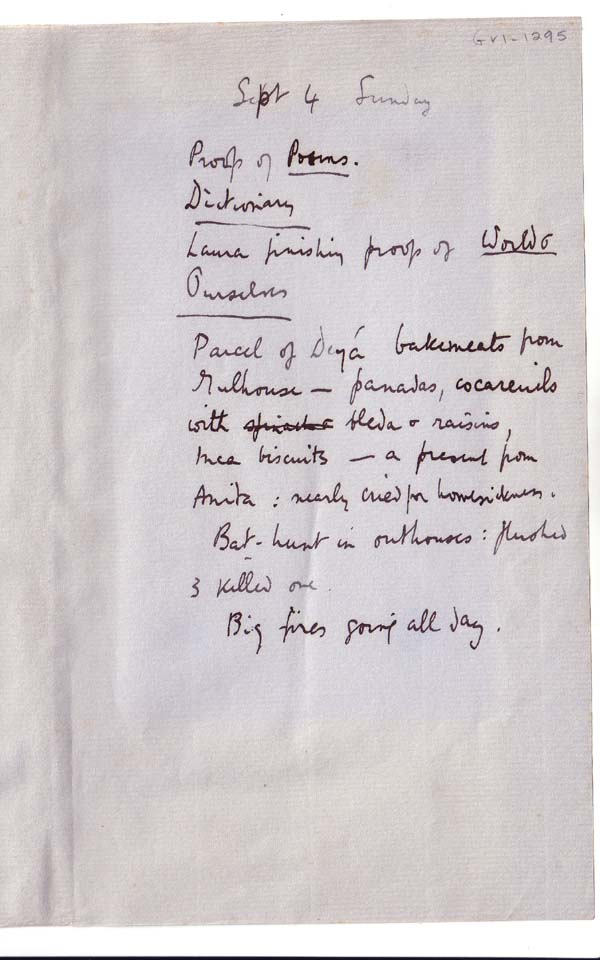 GV1-1295
Sept 4 Sunday
Proofs of Poems.
Dictionary
Laura finishing proofs of World &
Ourselves
Parcel of Deyá bakemeats from
Mulhouse – panadas, cocarevils
with spinach & bleda & raisins,
Inca biscuits – a present from
Anita: nearly cried for homesickness.
Bat-hunt in outhouses: flushed
3 killed one.
Big fires going all day.